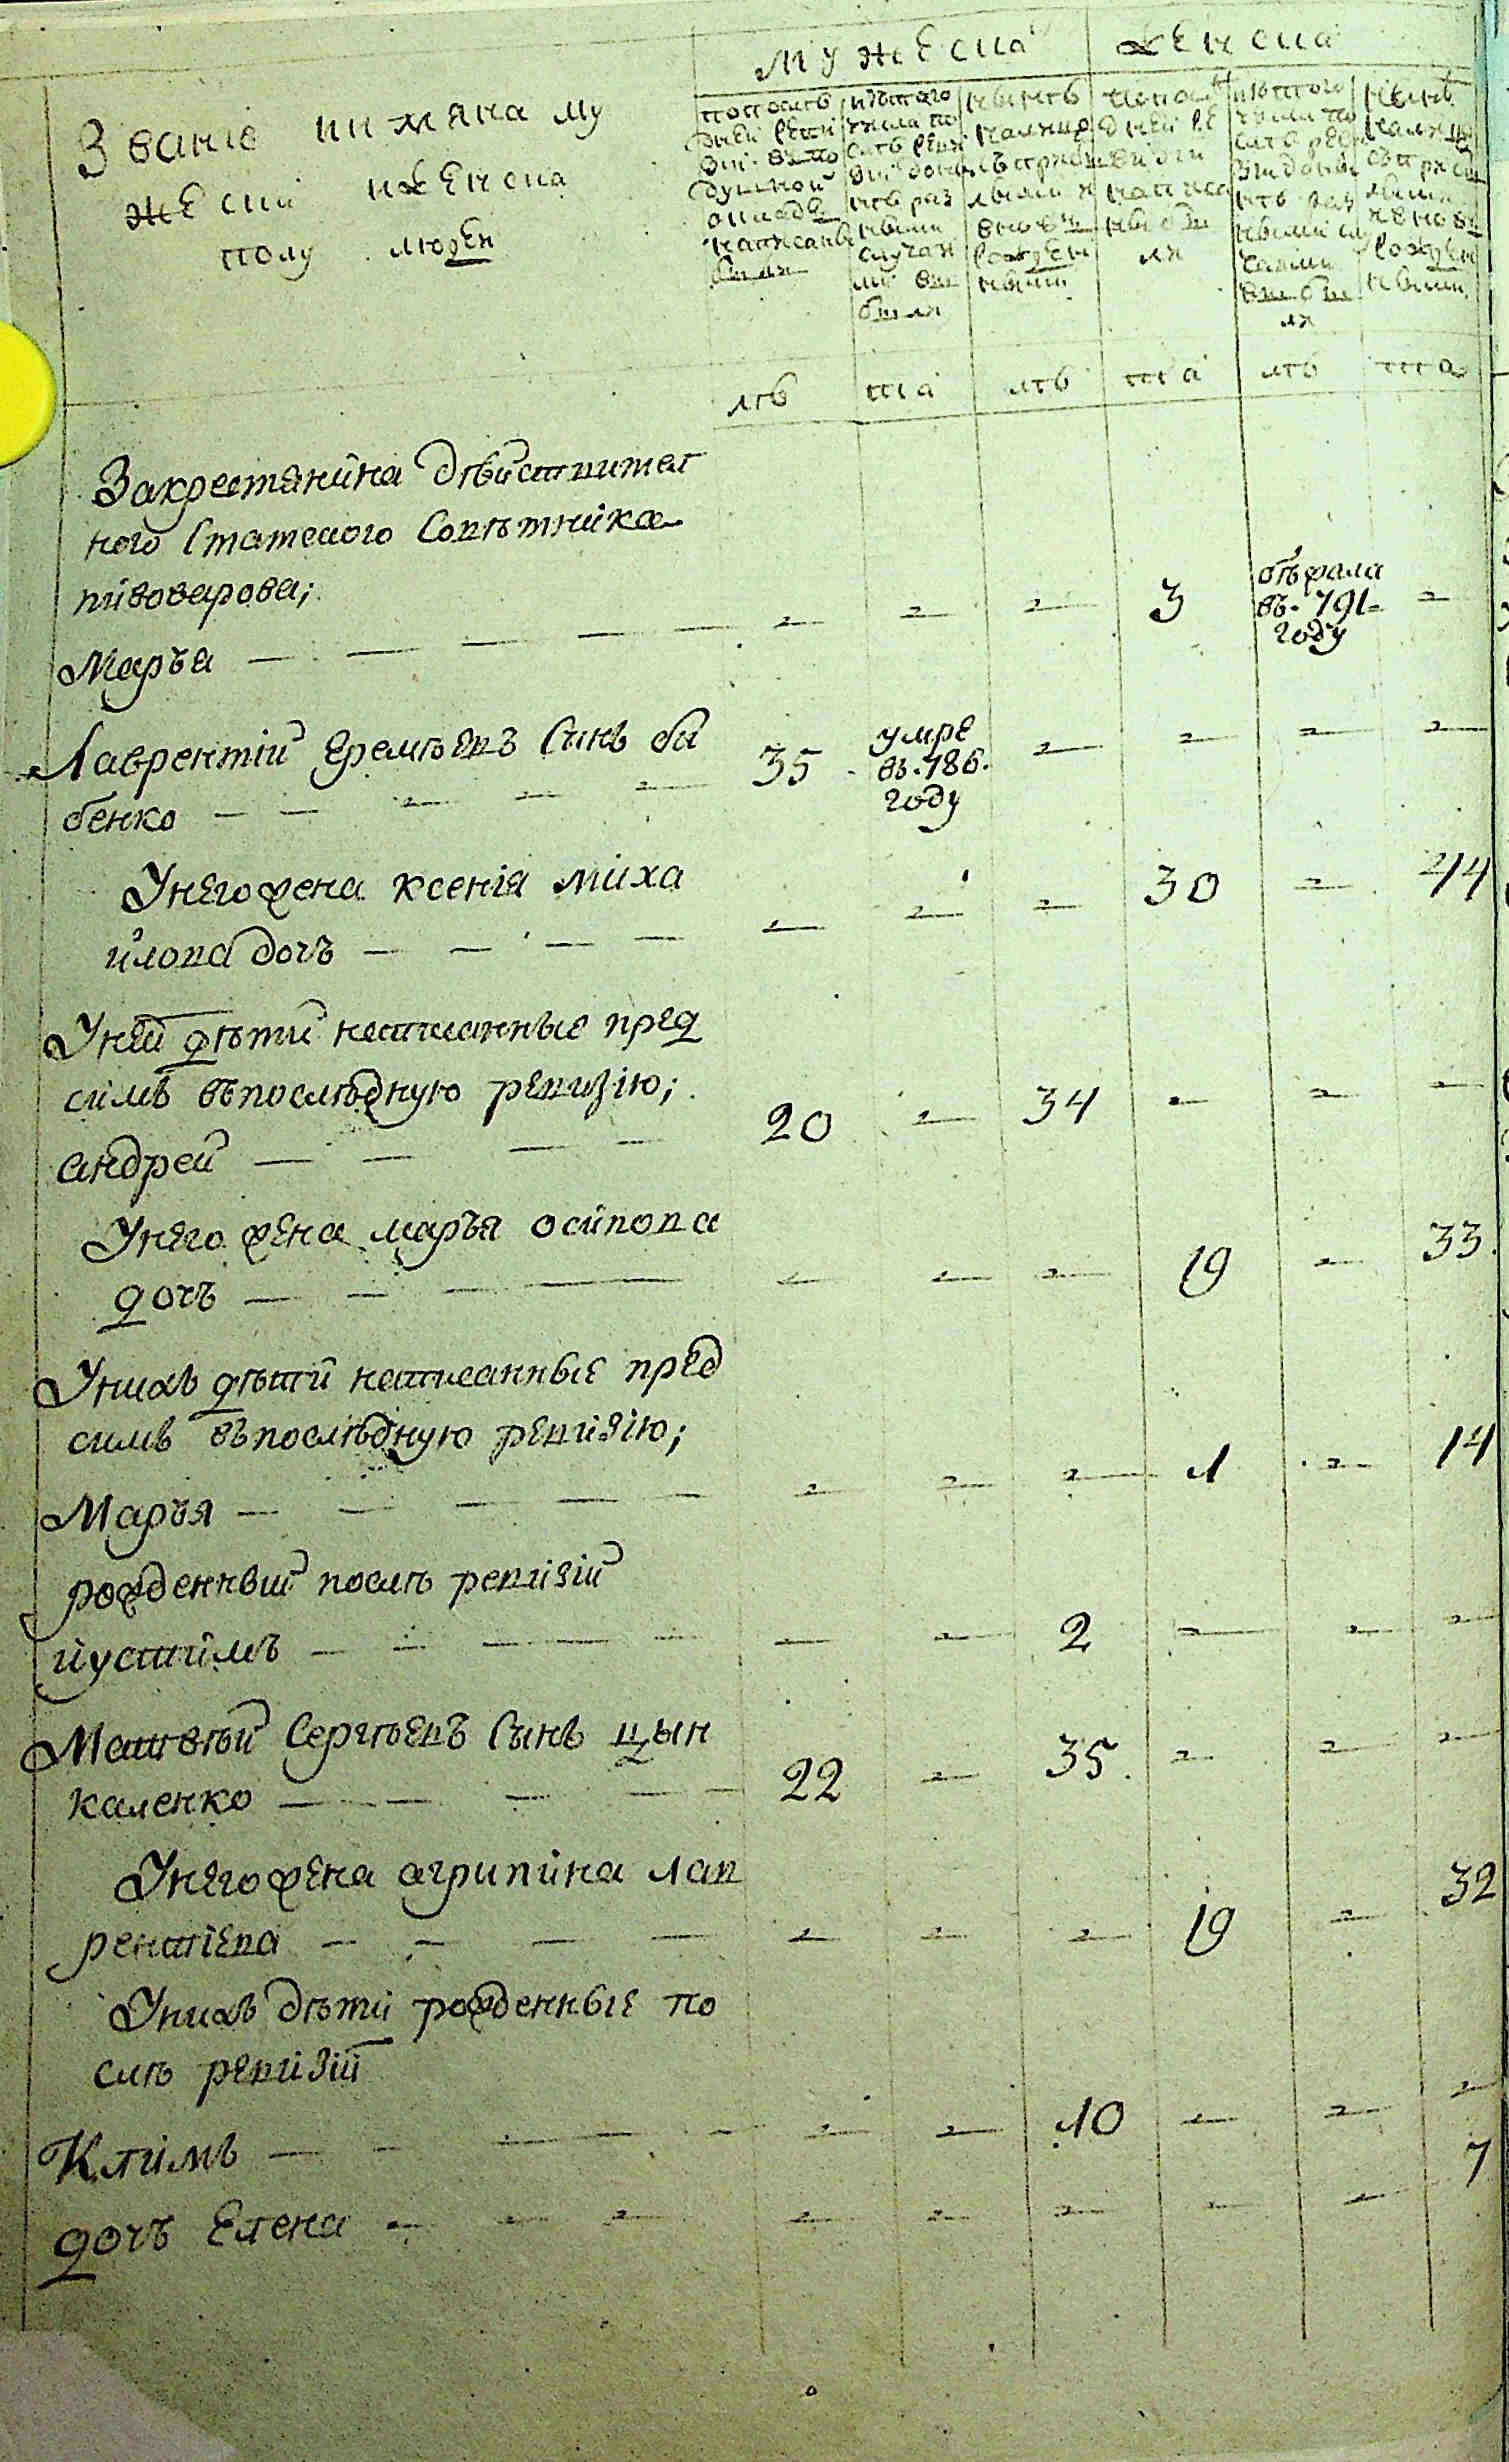 мужеска
женска
Званіе иимяна му
жеска иженска
полу людей
попослѣдней ревизіи въподушной окладъ написаны были
изтого числа послѣ ревизіи донынѣ разными случаями выбыли
нынѣ налицо съприбылыми и вновь рожденными
попослѣдней ревизіи написаны были
изтого числа послѣ ревизіи донынѣ разными случаями выбыли
нынѣ налицо съприбылыми и вновь рожденными
лѣ та лѣ та лѣ та
Закрестянина дѣйствител
ного Статского Совѣтника
пивоварова;
Марья — — — — — 3 отдана въ 791 году —
Лаврентій Еремѣевъ Сынъ ба
бенко — — — — — 35 умре въ 786 году — — — —
Унего жена ксенія миха
йлова дочъ — — — — — — — 30 — 44
Уней дѣти написанные пред
симъ въпослѣдную ревизію;
андрей — — — — 20 — 34 — — —
Унего жена марья осипова
дочъ — — — — — — 19 — 33
Унихъ дѣти написанные пред
симъ въпослѣдную ревизію;
Марья — — — — — — — — 1 — 14
рожденный послѣ ревизіи
иустимъ — — — — — — — 2 — — —
Матвѣй Сергѣевъ Сынъ цын
каленко — — — — — 22 — 35 — — —
Унего жена агрипина лав
рентіева — — — — — — — 19 — 32
Унихъ дѣти рожденные по
слѣ ревизіи
Климъ — — — — — — — 10 — — —
дочъ Елена — — — — — — — — 7